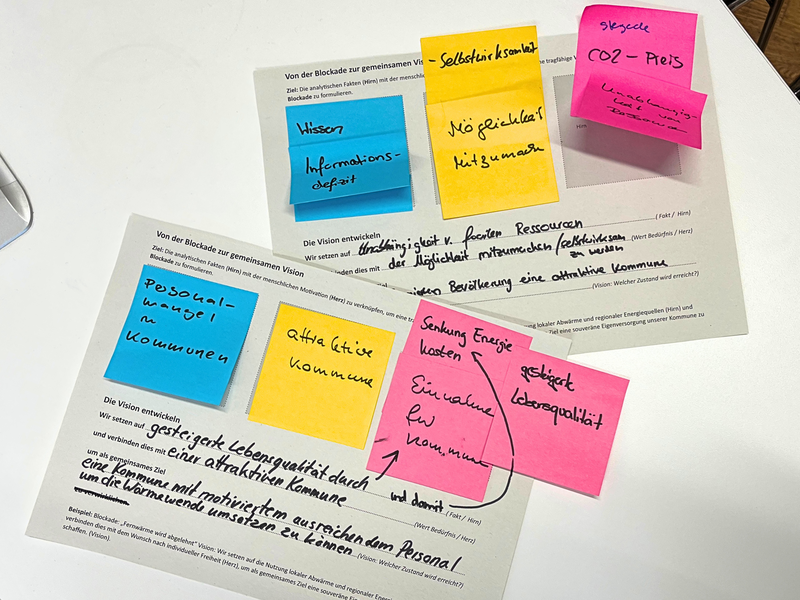 Von der Blockade zur gemeinsamen Vision
Ziel: Die analytischen Fakten (Hirn) mit der menschlichen
tragfähige
Blockade zu formulieren.
Wissen
Informations-
defizit
- Selbstwirksamkeit
Möglichkeit
Mitzumachen
steigende
CO2-Preis
Unabhängig-
keit von
Hirn
Die Vision entwickeln
Wir setzen auf Unabhängigkeit v. fossilen Ressourcen (Fakt / Hirn)
binden dies mit der Möglichkeit mitzumachen / selbstwirksam zu werden (Wert Bedürfnis / Herz)
Bevölkerung eine attraktive Kommune
(Vision: Welcher Zustand wird erreicht?)
lokaler Abwärme und regionaler Energiequellen (Hirn) und
Ziel eine souveräne Eigenversorgung unserer Kommune zu
Von der Blockade zur gemeinsamen Vision
Ziel: Die analytischen Fakten (Hirn) mit der menschlichen Motivation (Herz) zu verknüpfen, um eine
Blockade zu formulieren.
Personal-
mangel
in
Kommunen
attraktive
Kommune
Senkung Energie
kosten
Einnahme
für
Kommune
gesteigerte
Lebensqualität
Die Vision entwickeln
Wir setzen auf gesteigerte Lebensqualität durch
und damit (Fakt / Hirn)
und verbinden dies mit einer attraktiven Kommune
(Wert Bedürfnis / Herz)
um als gemeinsames Ziel
eine Kommune mit motiviertem ausreichendem Personal
um die Wärmewende umsetzen zu können (Vision: Welcher Zustand wird erreicht?)
Beispiel: Blockade: „Fernwärme wird abgelehnt" Vision: Wir setzen auf die Nutzung lokaler Abwärme und regionaler
verbinden dies mit dem Wunsch nach individueller Freiheit (Herz), um als gemeinsames Ziel eine souveräne
schaffen. (Vision).